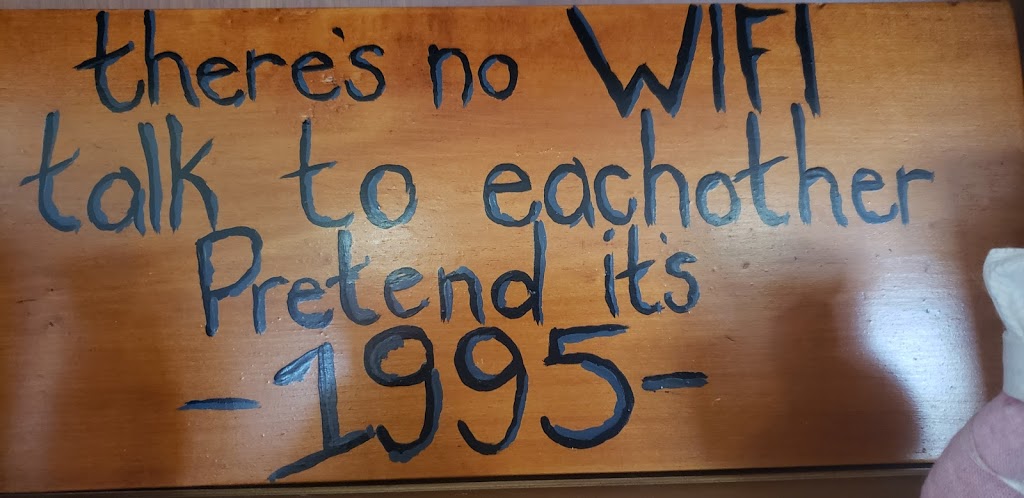 there's no WIFI
talk to eachother
Pretend it's
-1995-